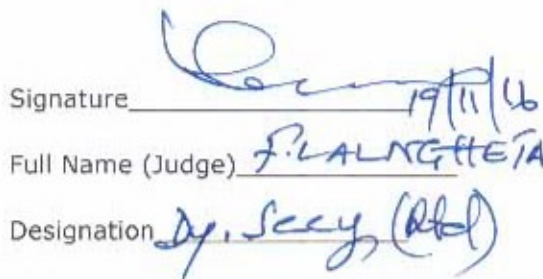 Signature 19/11/16
Full Name (Judge) F. LALNGHETA
Designation Dy. Secy, (Rtd)